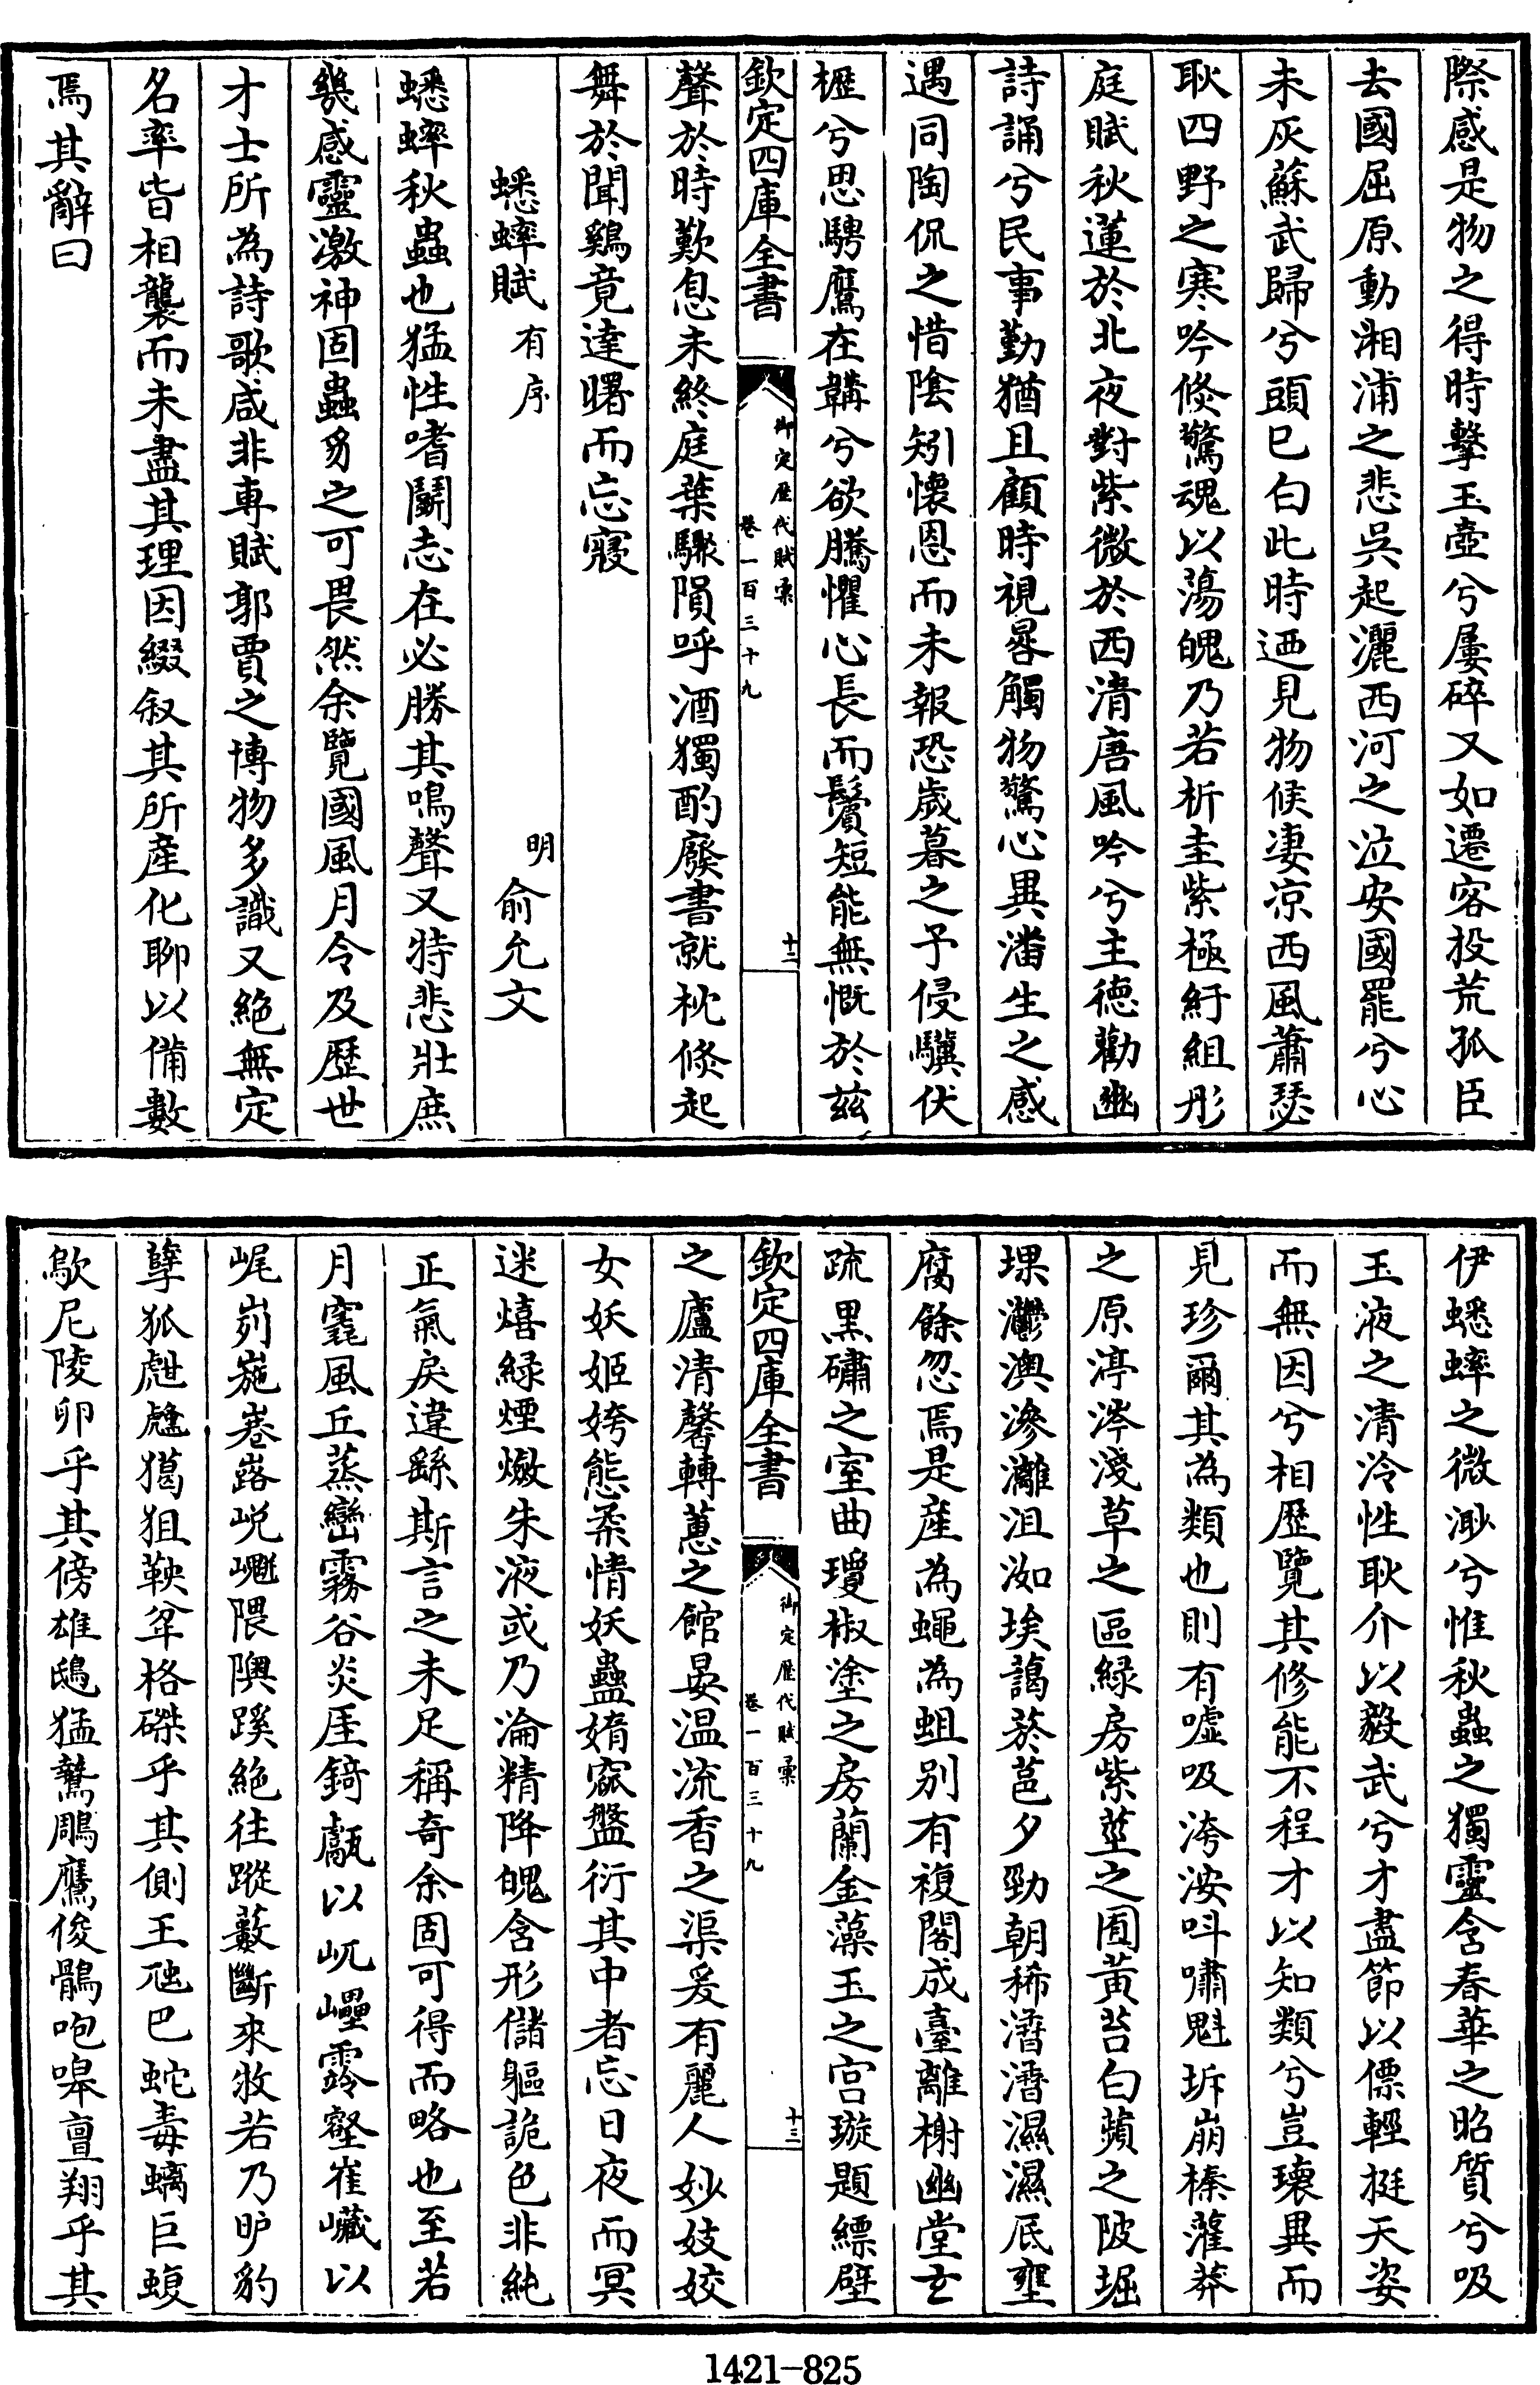 際感是物之得時擊玉壺兮屢碎又如遷客投荒孤臣
去國屈原動湘浦之悲吳起灑西河之泣安國罷兮心
未灰蘇武歸兮頭已白此時迺見物候淒涼西風蕭瑟
耿四野之寒吟倏驚魂以蕩魄乃若析圭紫極紆組彤
庭賦秋蓮於北夜對紫微於西清唐風吟兮主德勸豳
詩誦兮民事勤猶且顧時視晷觸物驚心異潘生之感
遇同陶侃之惜陰矧懷恩而未報恐歲暮之予侵驥伏
櫪兮思騁鷹在韝兮欲騰懼心長而鬢短能無慨於茲
欽定四庫全書
御定歷代賦彙
卷一百三十九
十二
聲於時歎息未終庭葉驟隕呼酒獨酌廢書就枕倏起
舞於聞鷄竟達曙而忘寢
蟋蟀賦有序
明俞允文
蟋蟀秋蟲也猛性嗜鬬志在必勝其鳴聲又特悲壯庶
幾感靈激神固蟲豸之可畏然余覽國風月令及歷世
才士所為詩歌咸非專賦郭賈之博物多識又絶無定
名率皆相襲而未盡其理因綴叙其所産化聊以備數
焉其辭曰
伊蟋蟀之微渺兮惟秋蟲之獨靈含春華之昭質兮吸
玉液之清泠性耿介以毅武兮才盡節以僄輕挺天姿
而無因兮相歷覽其修能不程才以知類兮豈瓌異而
見珍爾其為類也則有嘘吸洿洝呌嘯魁坼崩榛灌莽
之原渟涔淺草之區緑房紫莖之圃黄苔白蘋之陂堀
堁灪澳滲灕沮洳埃藹菸萏夕勁朝稀濳濳濕濕底壅
腐餘忽焉是産為蠅為蛆别有複閣成臺離榭幽堂玄
疏黒磠之室曲瓊椒塗之房蘭金藻玉之宫璇題縹壁
欽定四庫全書
御定歷代賦彙
卷一百三十九
十三
之廬清馨轉蕙之館晏温流香之渠爰有麗人妙妓姣
女妖姬姱態柔情妖蠱媠窳盤衍其中者忘日夜而冥
迷熺緑煙爓朱液或乃淪精降魄含形儲軀詭色非純
正氣戾違繇斯言之未足稱奇余固可得而略也至若
月窟風丘蒸巒霧谷炎厓錡甗以屼㠥霛壑崔巇以
崐峛崺峑㟏峴嵦隈隩蹊絶往蹤藪斷來牧若乃旷豹
孽狐甝麙獦狙鞅穽格磔乎其側王虺巴蛇毒螭巨蝮
歍尼陵卵乎其傍雄鴟猛鷙鵰鷹俊鶻咆嘷亶翔乎其
1421-825